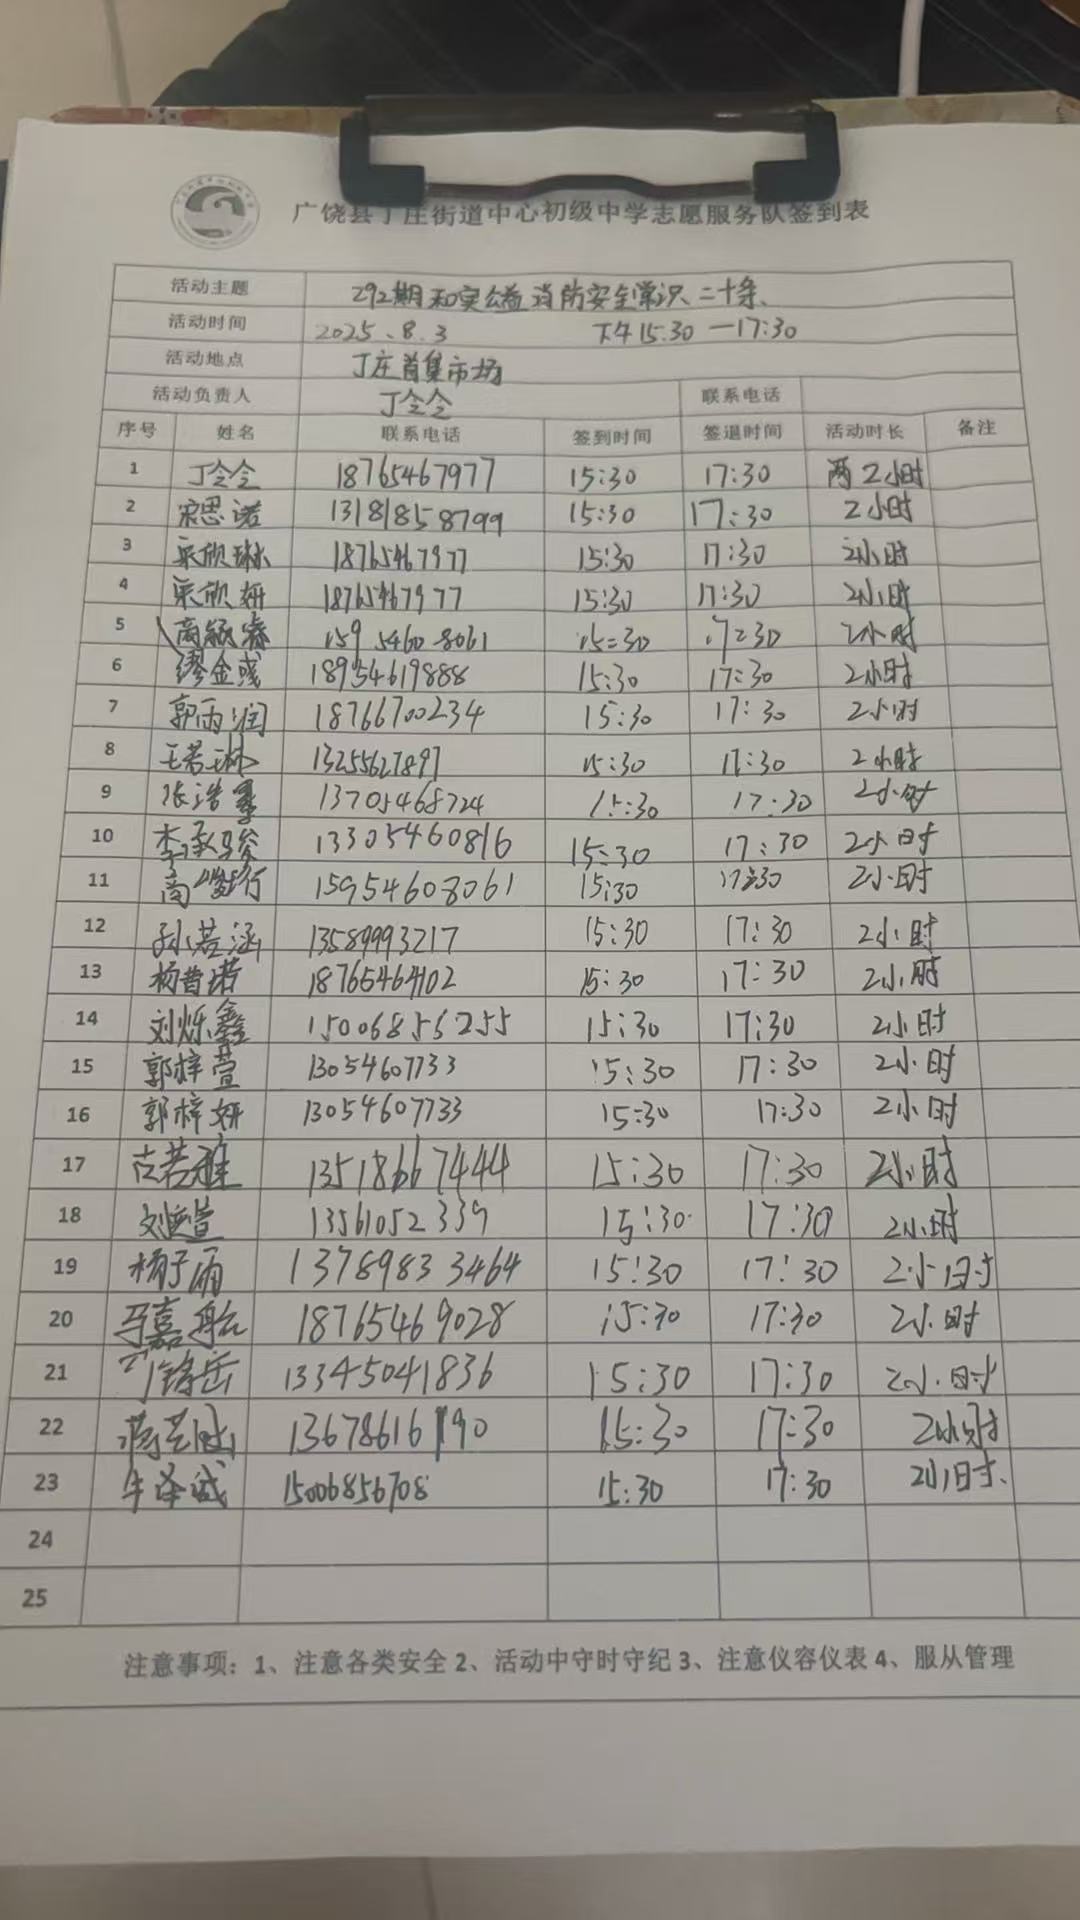 广饶县丁庄街道中心初级中学志愿服务队签到表
活动主题 292期和实公益消防安全常识二十条、
活动时间 2025、8.3 下午15:30—17:30
活动地点 丁庄首集市场
活动负责人 丁令令 联系电话
序号 姓名 联系电话 签到时间 签退时间 活动时长 备注
1 丁令令 18765467977 15:30 17:30 两2小时
2 宋思诺 13181858799 15:30 17:30 2小时
3 欣琳 18765467977 15:30 17:30 2小时
4 欣妍 18765467977 15:30 17:30 2小时
5 高颖睿 159 5460 8061 15:30 17:30 2小时
6 缪金彧 18954619888 15:30 17:30 2小时
7 郭雨润 18766700234 15:30 17:30 2小时
8 王若琳 13255627897 15:30 17:30 2小时
9 张浩 13705468724 15:30 17:30 2小时
10 李承骏 13305460816 15:30 17:30 2小时
11 高 行 15954608061 15:30 17:30 2小时
12 孙若涵 13589993217 15:30 17:30 2小时
13 杨普诺 18765464102 15:30 17:30 2小时
14 刘烁鑫 15006856255 15:30 17:30 2小时
15 郭梓萱 13054607733 15:30 17:30 2小时
16 郭梓妍 13054607733 15:30 17:30 2小时
17 古若雅 13518667444 15:30 17:30 2小时
18 刘 萱 13561052339 15:30 17:30 2小时
19 杨子雨 13789833464 15:30 17:30 2小时
20 马嘉航 18765469028 15:30 17:30 2小时
21 丁锦岳 13345041836 15:30 17:30 2小时
22 蒋 13678616190 15:30 17:30 2小时
23 牛泽诚 15006856708 15:30 17:30 2小时、
24
25
注意事项：1、注意各类安全 2、活动中守时守纪 3、注意仪容仪表 4、服从管理